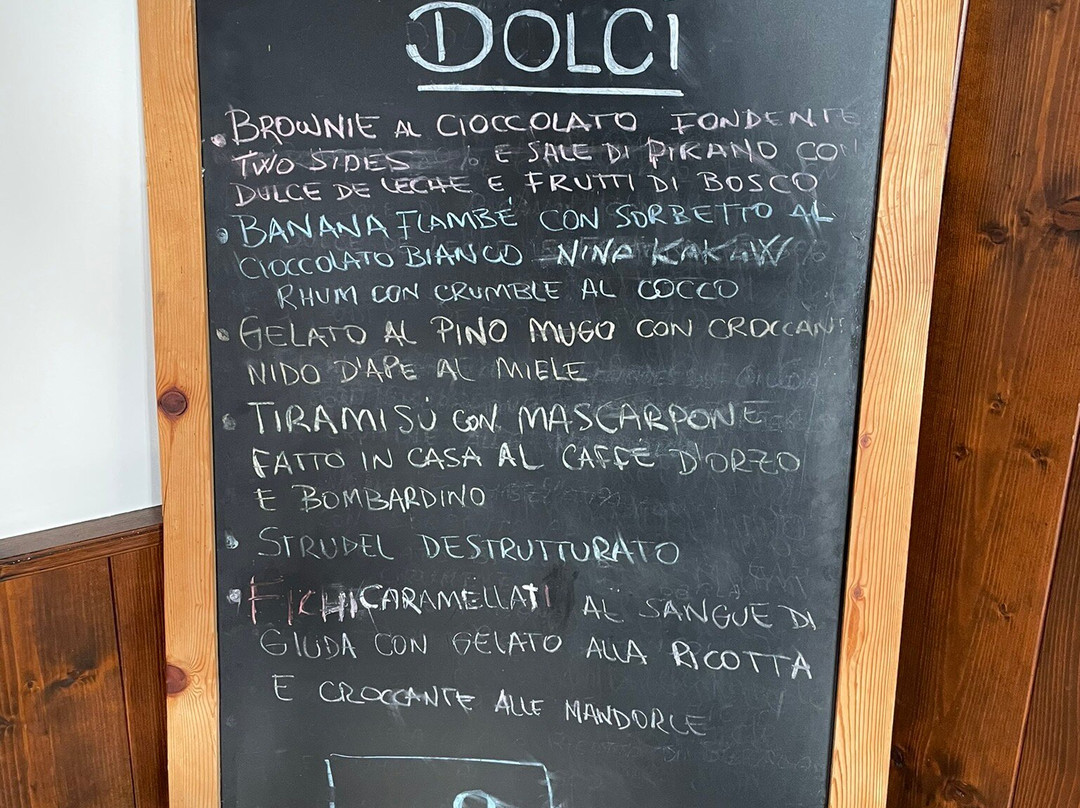 DOLCI
BROWNIE AL CIOCCOLATO FONDENTE
TWO SIDES E SALE DI PIRANO CON
DULCE DE LECHE E FRUTTI DI BOSCO
BANANA FLAMBÉ CON SORBETTO AL
CIOCCOLATO BIANCO NINA
RHUM CON CRUMBLE AL COCCO
GELATO AL PINO MUGO CON CROCCANTE
NIDO D'APE AL MIELE
TIRAMISÚ CON MASCARPONE
FATTO IN CASA AL CAFFÈ D'ORZO
E BOMBARDINO
STRUDEL DESTRUTTURATO
FICHI CARAMELLATI AL SANGUE DI
GIUDA CON GELATO ALLA RICOTTA
E CROCCANTE ALLE MANDORLE